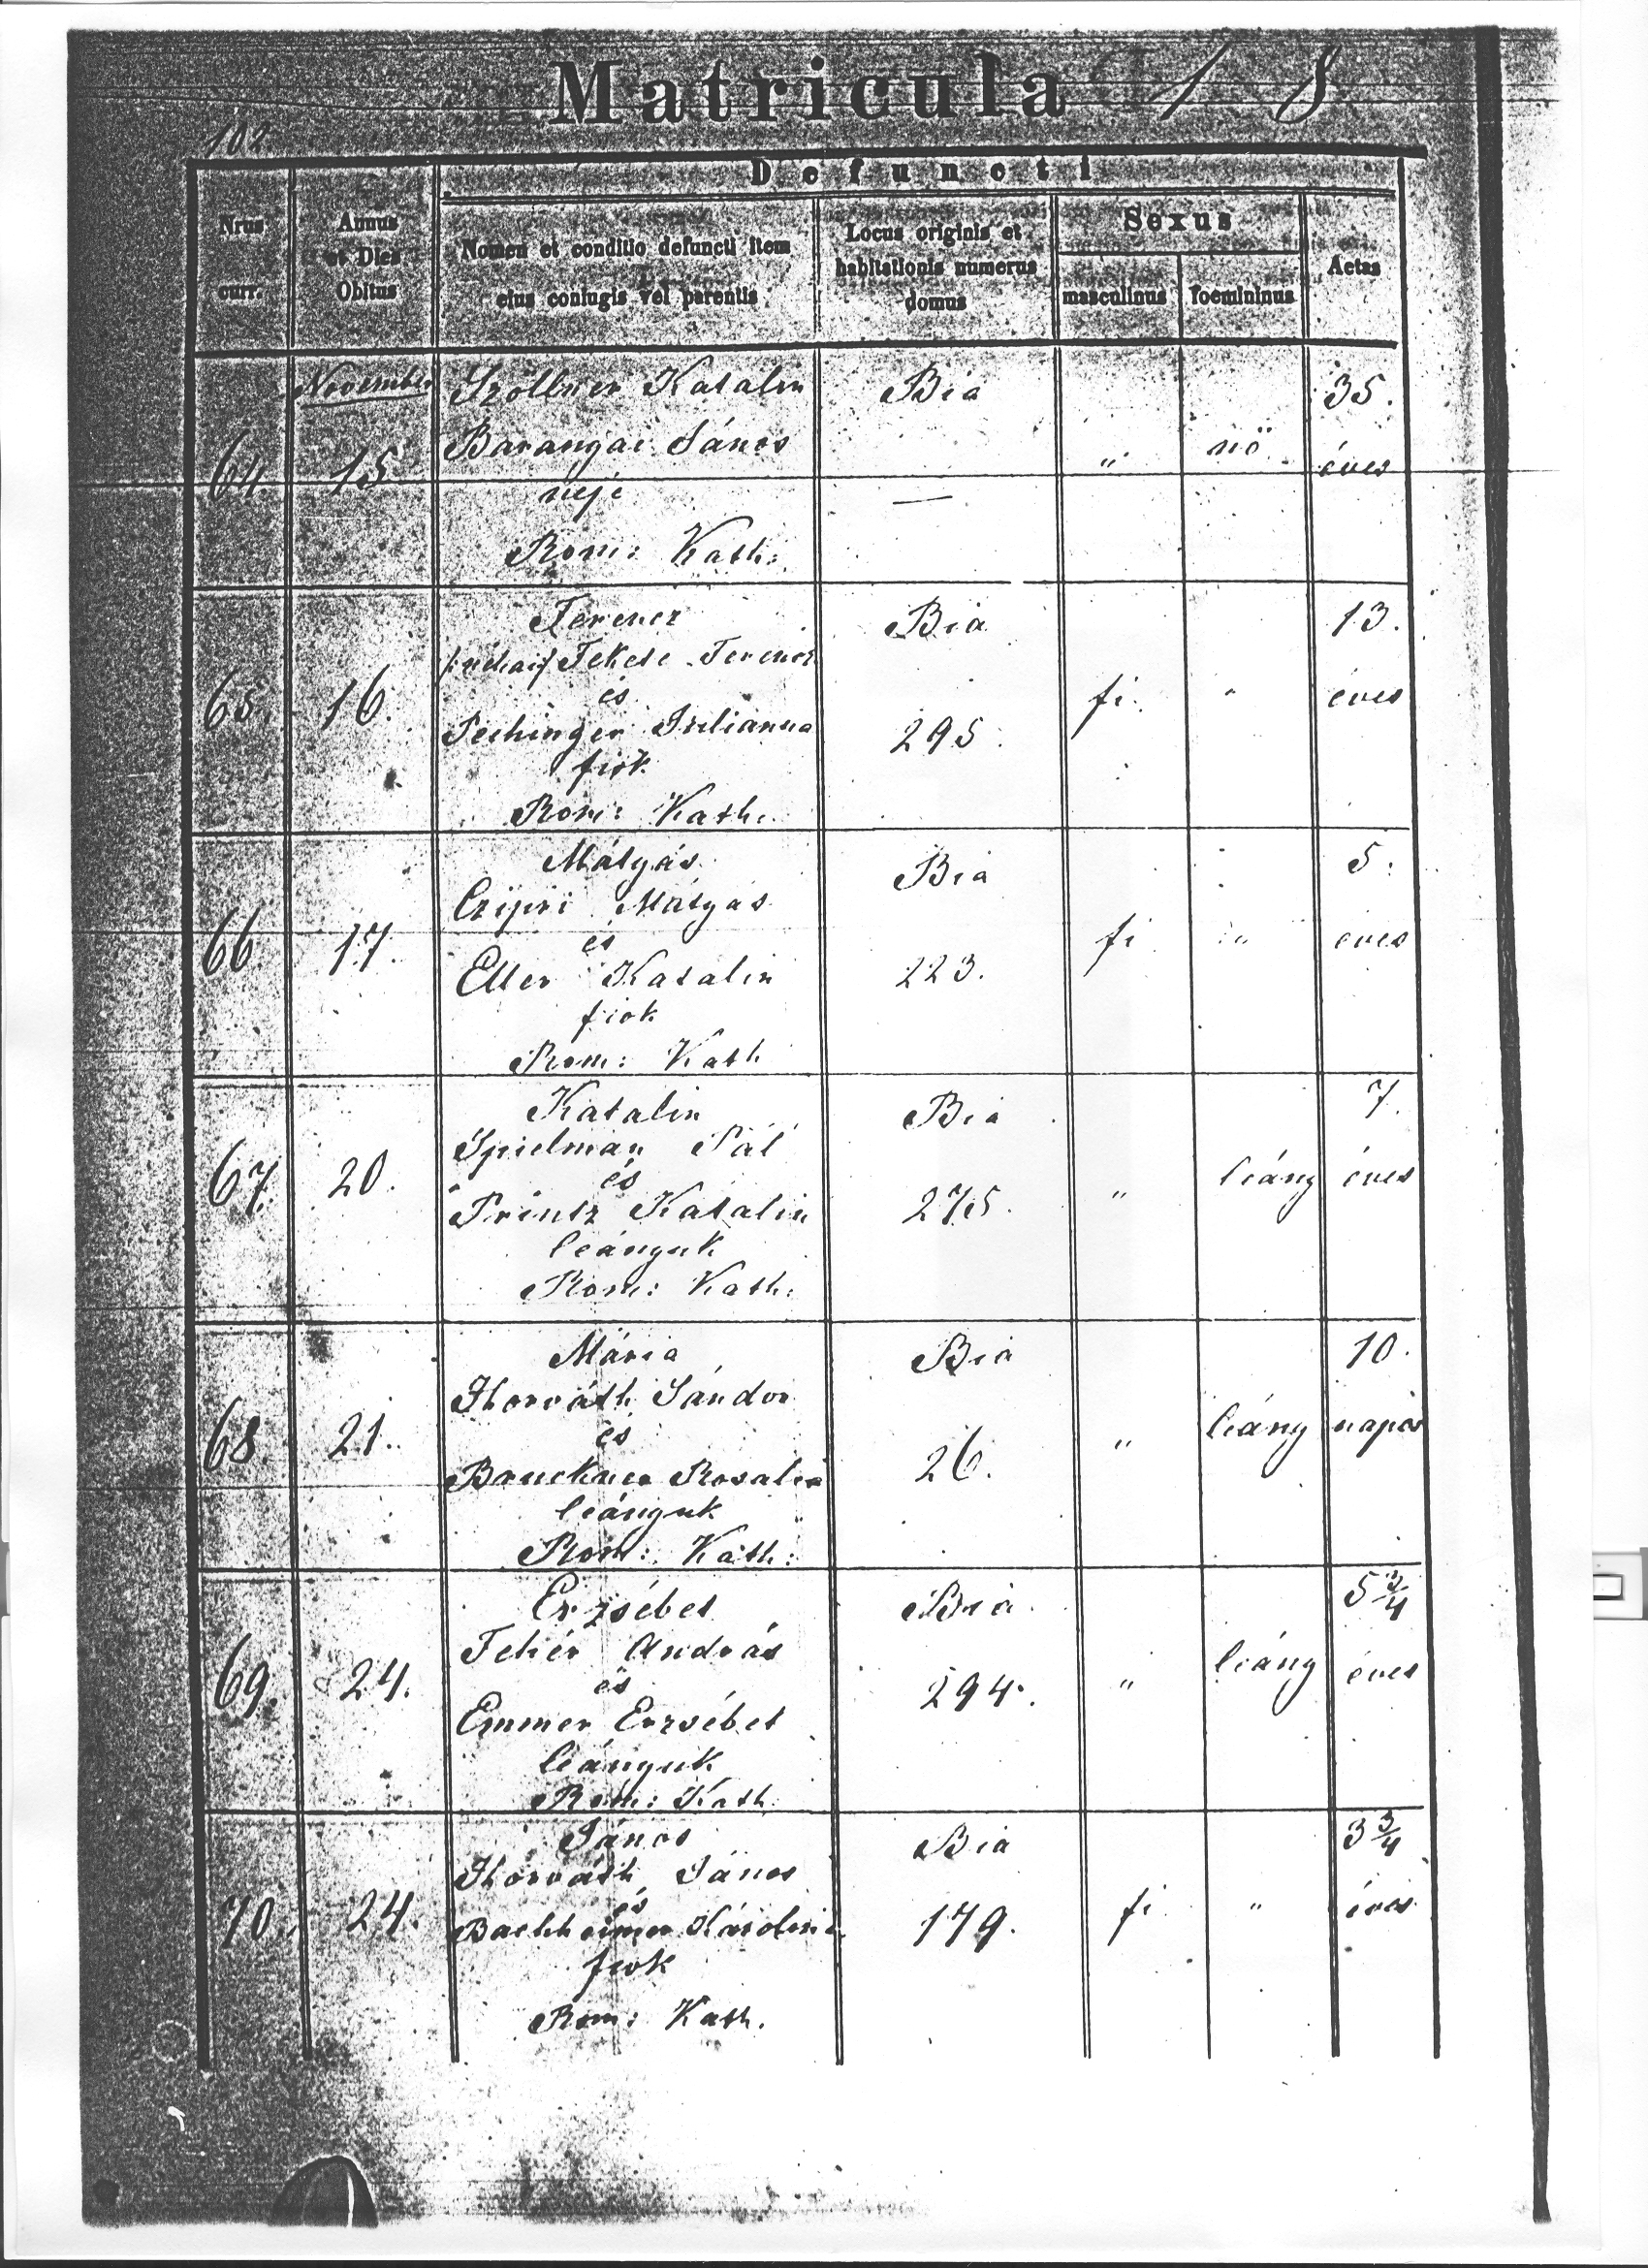 Matricula 18
102
Defuncti
Nrus curr.
Annus et Dies Obitus
Nomen et conditio defuncti item eius coniugis vel parentis
Locus originis et habitationis numerus domus
Sexus
masculinus
foemininus
Aetas
November
64. 15
Szöllner Katalin
Barangai János
neje
Rom: Kath:
Bia
—
" nö
35.
éves
65. 16.
Ferencz
Fekete Ferencz
és
Pechinger Julianna
fiok
Rom: Kath.
Bia
295.
fi. "
13.
éves
66 17.
Mátyás
Czipri Mátyás
és
Eller Katalin
fiok
Rom: Kath
Bia
223.
fi "
5.
éves
67. 20.
Katalin
Spielman Pál
és
Printz Katalin
leányuk
Rom: Kath.
Bia
275.
" leány
7.
éves
68. 21.
Mária
Horváth Sándor
és
Bruckner Rosalia
leányuk
Rom: Kath:
Bia
26.
" leány
10.
napos
69. 24.
Erzsébet
Fehér András
és
Emmer Erzsébet
leányuk
Rom: Kath
Bia
294.
" leány
5 3/4
éves
70. 24.
János
Horváth János
és
Bachheimer Károlina
fiok
Rom: Kath.
Bia
179.
fi "
3 3/4
éves